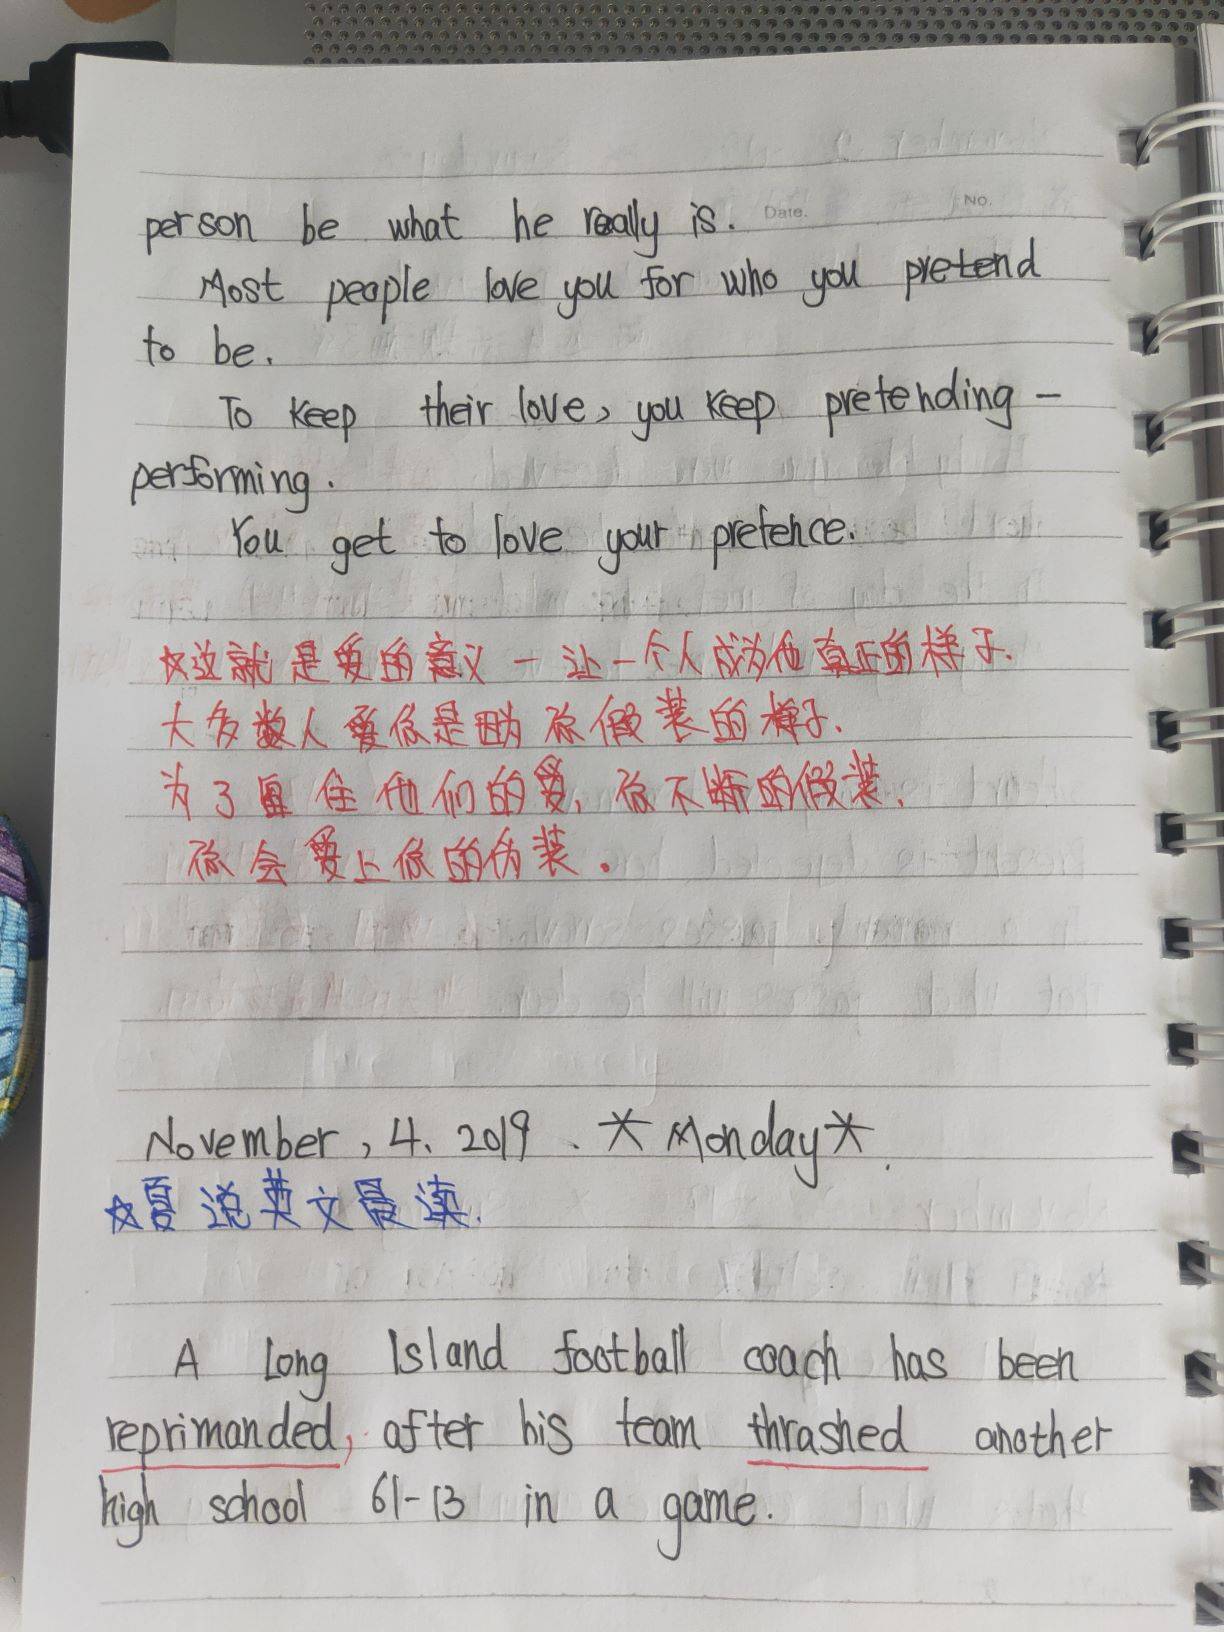 Date.
No.
person be what he really is.
Most people love you for who you pretend
to be.
To keep their love, you keep pretending -
performing.
You get to love your pretence.
☆这就是爱的意义一让一个人成为他真正的样子.
大多数人爱你是因为你假装的样子.
为了留住他们的爱,你不断的假装.
你会爱上你的伪装.
November, 4. 2019. * Monday *.
☆夏说英文晨读.
A Long Island football coach has been
reprimanded, after his team thrashed another
high school 61-13 in a game.